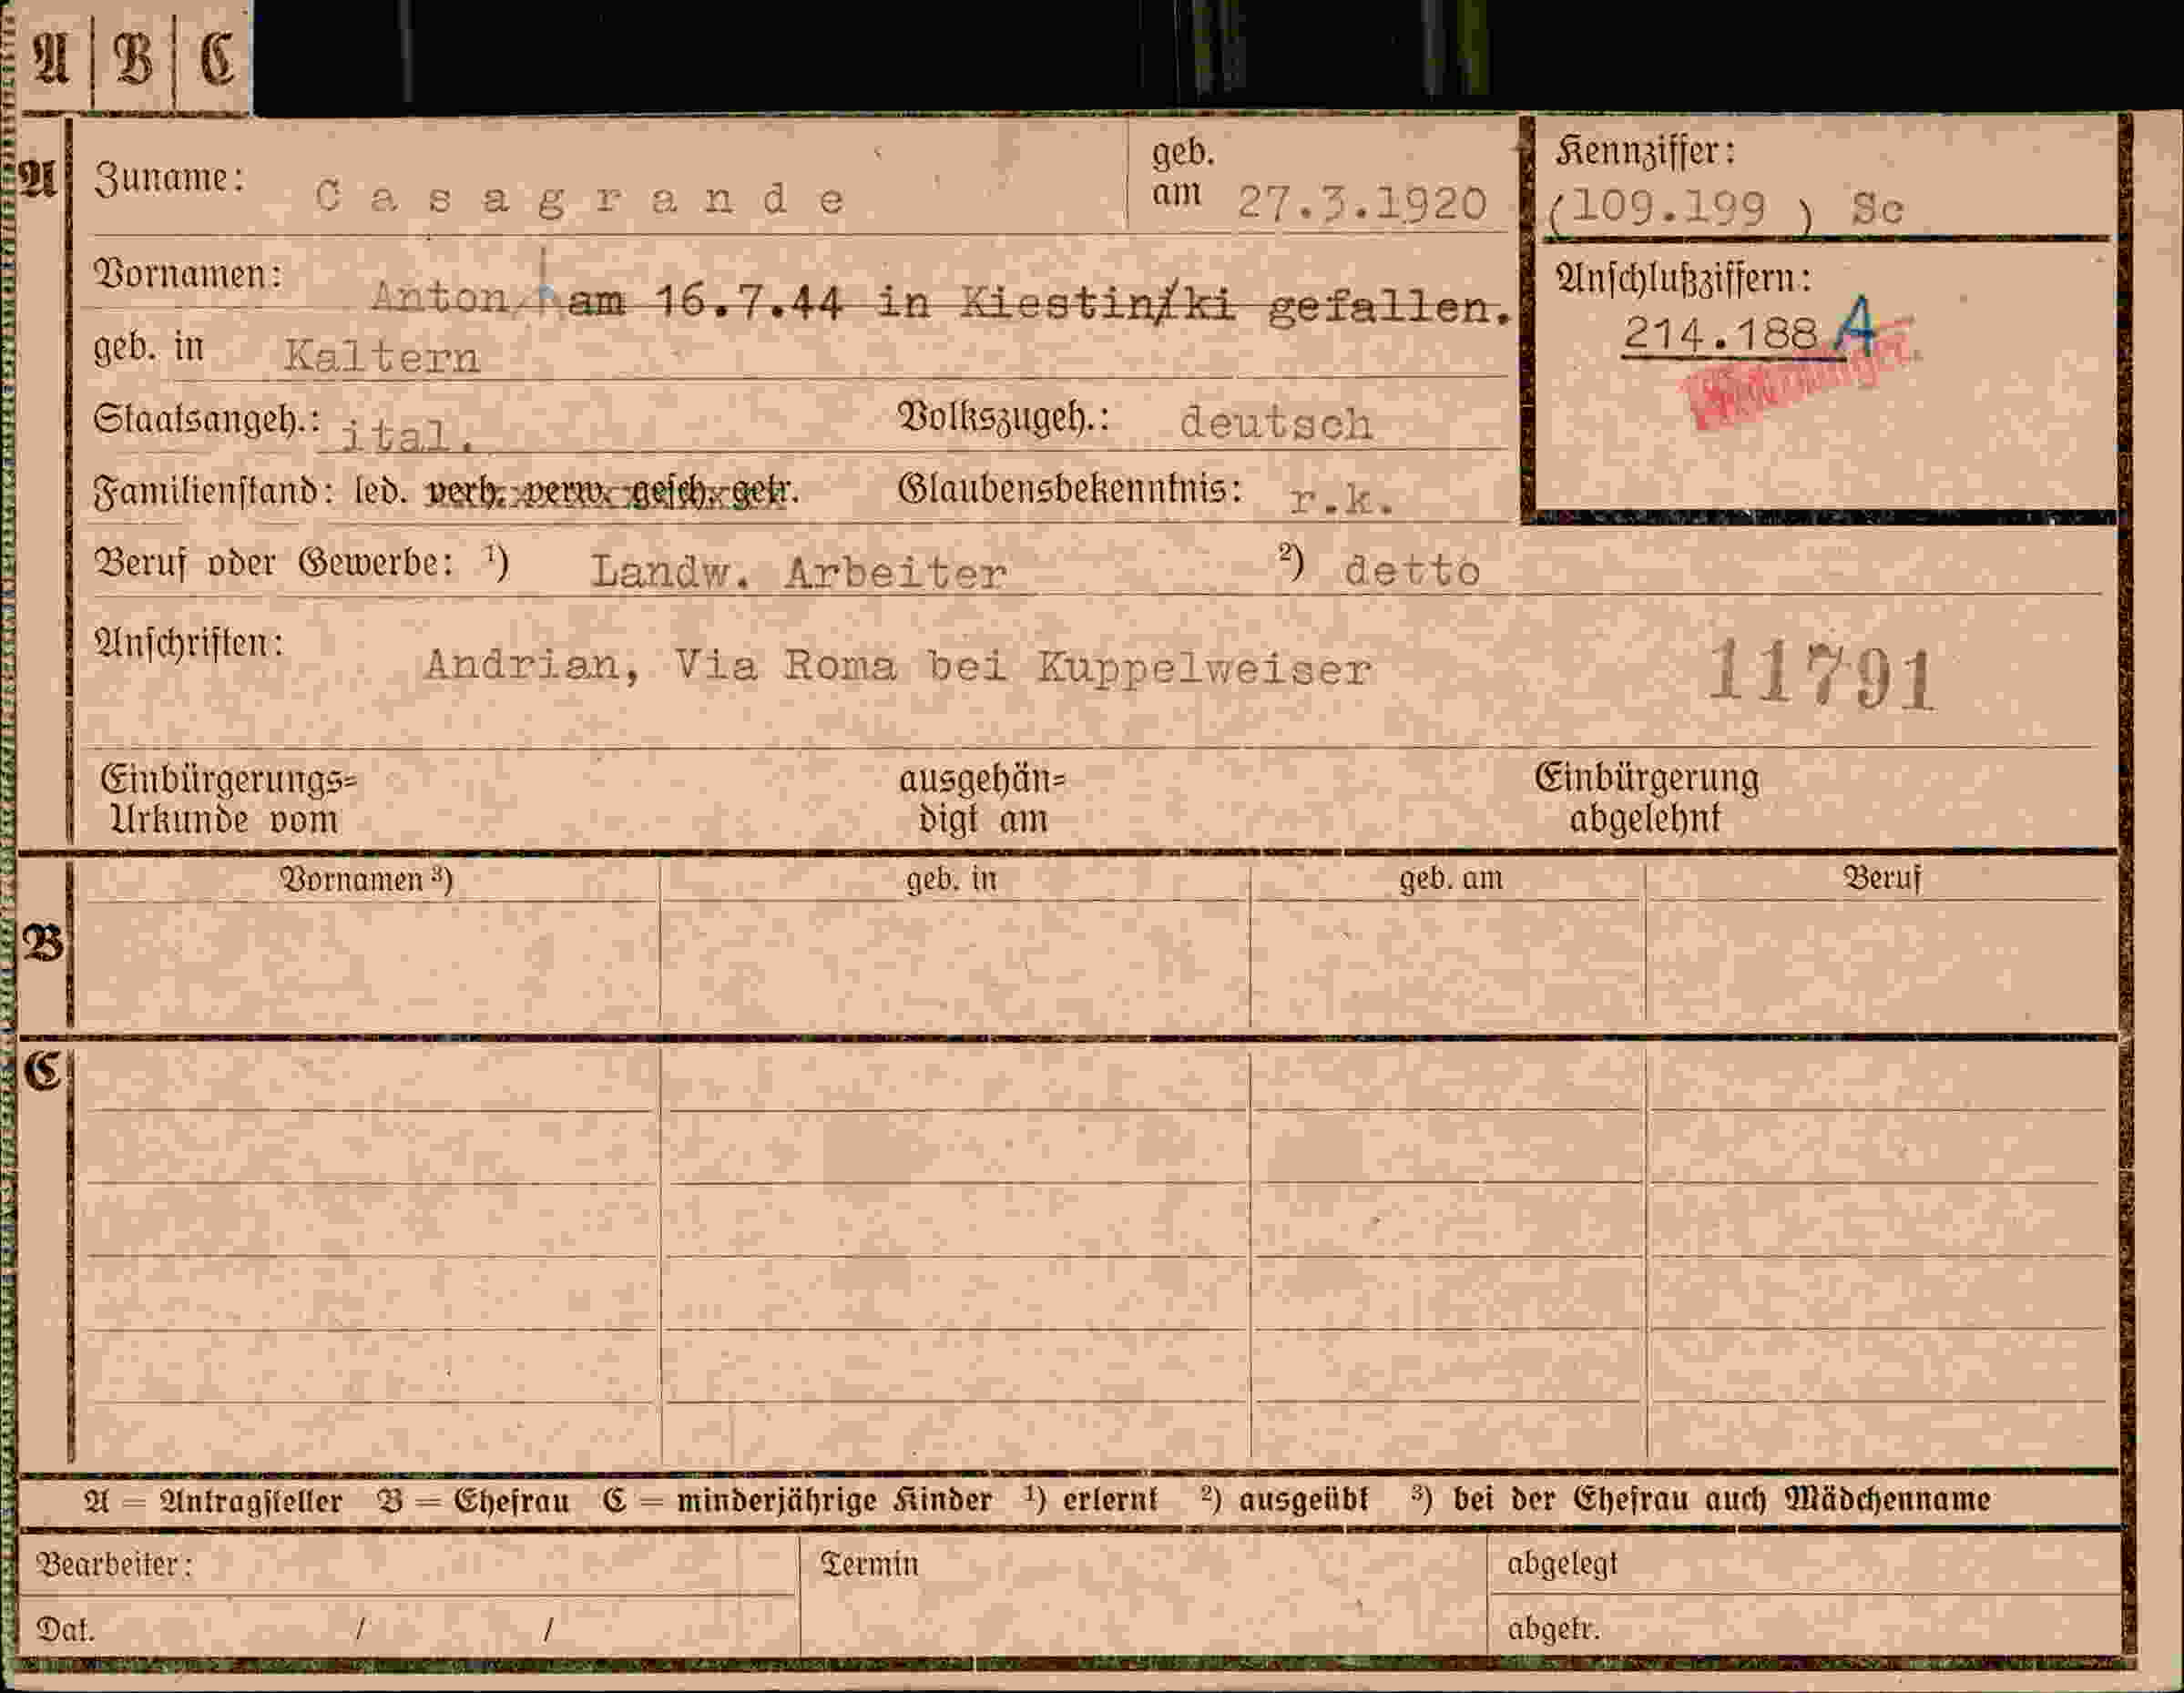 A | B | C
A
Zuname: Casagrande
geb. am 27.3.1920
Kennziffer:
(109.199 ) Sc
Vornamen: Anton, am 16.7.44 in Kiestin/ki gefallen.
Anschlußziffern:
214.188 A
geb. in Kaltern
Staatsangeh.: ital. Volkszugeh.: deutsch
Familienstand: led. verh. verw. gesch. getr. Glaubensbekenntnis: r.k.
Beruf oder Gewerbe: ¹) Landw. Arbeiter ²) detto
Anschriften: Andrian, Via Roma bei Kuppelweiser
11791
Einbürgerungs= Urkunde vom
ausgehän= digt am
Einbürgerung abgelehnt
B
Vornamen ³) geb. in geb. am Beruf
C
A = Antragsteller B = Ehefrau C = minderjährige Kinder ¹) erlernt ²) ausgeübt ³) bei der Ehefrau auch Mädchenname
Bearbeiter: Termin abgelegt
Dat. / / abgetr.